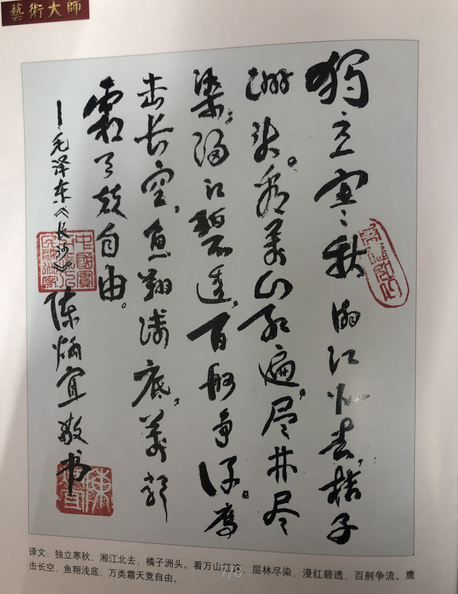 藝術大師
独立寒秋,湘江北去,桔子
洲头。看万山红遍,层林尽
染,漫江碧透,百舸争流。鹰
击长空,鱼翔浅底,万类
霜天竞自由。
—毛泽东《长沙》 陈炳宜敬书
译文:独立寒秋,湘江北去,橘子洲头。看万山红遍,层林尽染,漫红碧透,百舸争流。鹰
击长空,鱼翔浅底,万类霜天竞自由。